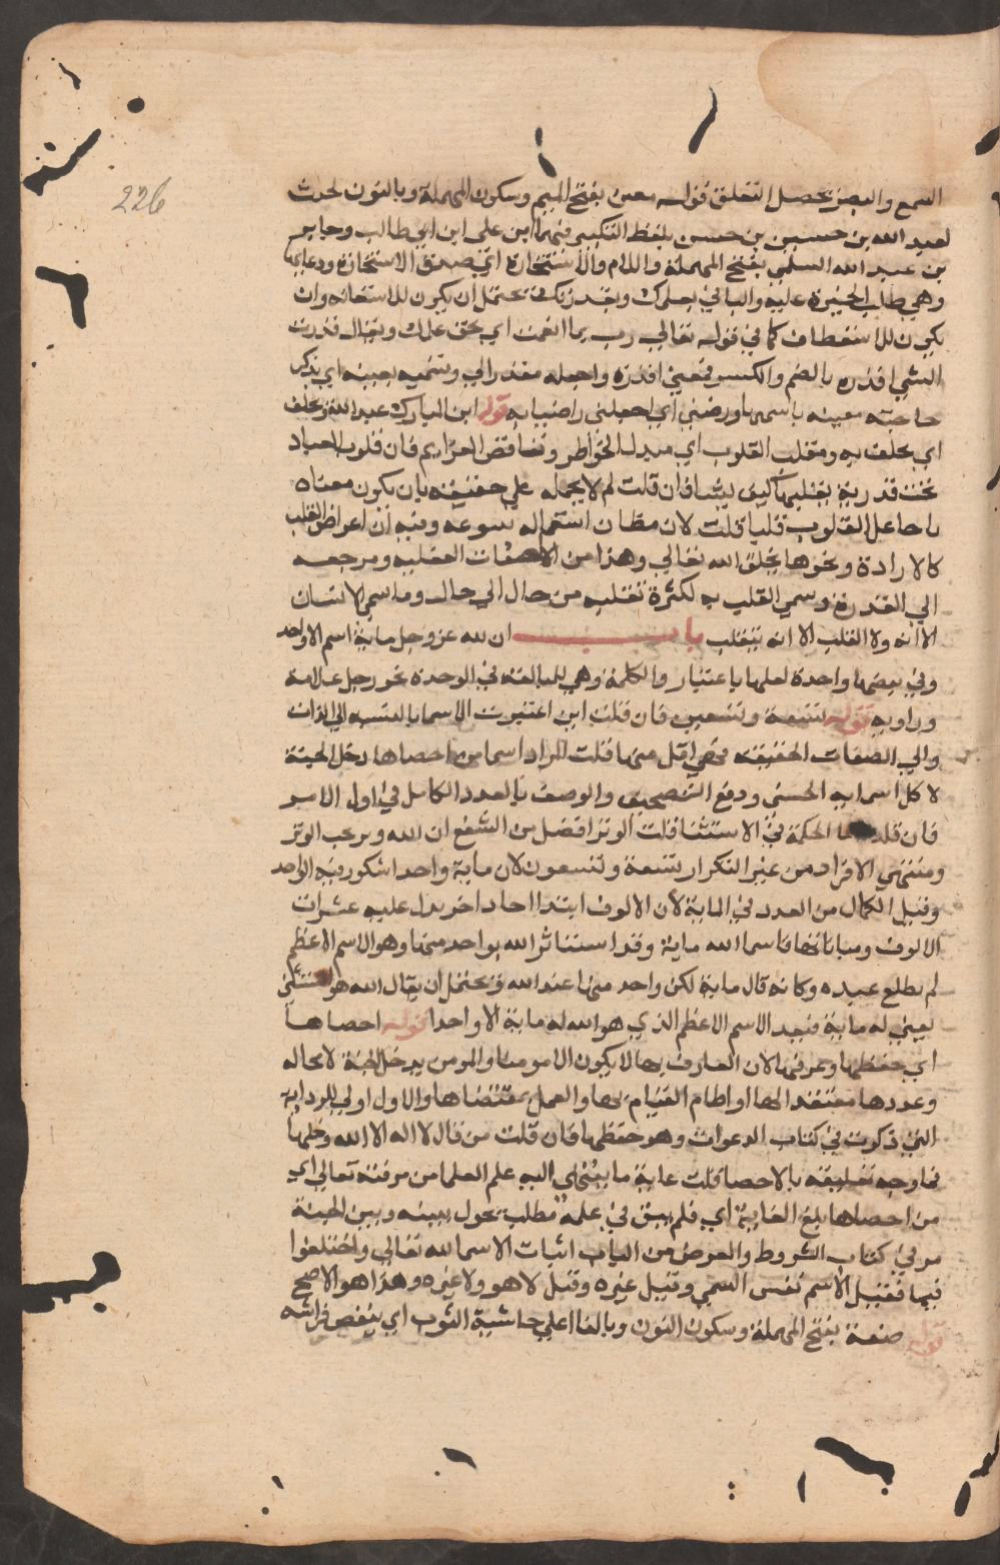 226
السمع والبصر يحصل التعلق قوله معن بفتح الميم وسكون المهملة وبالنون يحدث
لعبد الله بن حسين بن حسن بلفظ التكبير فيهما ابن علي ابن ابي طالب وجابر
بن عبد الله السلمي بفتح المهملة واللام والاستخارة اي صدق الاستخارة ودعايها
وهي طلب الخيرة عليه والبا في بعلمك وبقدرتك تحتمل ان يكون للاستعانة وان
يكون للاستعطاف كما في قوله تعالى رب بما انعمت اي بحق علمك ويقال قدرت
الشي اقدره بالضم والكسر فمعنى اقدره واجعله مقدرا لي وتسميه بعينه اي يذكر
حاجته معينه باسمها ورضني اي اجعلني راضيا به قوله ابن المبارك عبد الله ويحلف
اي يحلف به ومقلب القلوب اي مبدل الخواطر وناقض العزايم فان قلوب العباد
تحت قدرته يقلبها كيف يشا فان قلت لم لا يحمله علي حقيقته بان يكون معناه
يا جاعل القلوب قلبا قلت لان مظان استعماله وفيه ان اعراض القلب
كالارادة ونحوها بخلق الله تعالي وهذا من الصفات الفعليه ومرجعه
الي القدرة وسمي القلب به لكثرة تقلبه من حال الي حال وما سمي الانسان
الا انه ولا القلب الا انه يتقلب باب ان لله عز وجل ماية اسم الا واحد
وفي بعضها واحدة لعلها باعتبار والكلمة وهي للمبالغة في الوحدة نحو رجل علامة
وراوية قوله تسعة وتسعين فان قلت ان اعتبرت الاسما بالنسبه الي الذات
والي الصفات الحقيقة فهي اقل منها قلت المراد اسما من احصاها دخل الجنة
لا كل اسمايه الحسنى ودفع التصحيف والوصف بالعدد الكامل في اول الامر
فان قلت ما الحكمة في الاستثنا قلت الوتر افضل من الشفع ان الله وتر يحب الوتر
ومنتهى الافراد من غير التكرار تسعة وتسعون لان ماية واحدا تكرر فيه الواحد
وقيل الكمال من العدد في الماية لان الالوف ابتدا احاد اخر يدل عليه عشرات
الالوف ومياتها فاسما الله ماية وقد استاثر الله بواحد منها وهو الاسم الاعظم
لم يطلع عبيده وكانه قال ماية لكن واحد منها عند الله ويحتمل ان يقال الله هو المستثنى
يعني له ماية فبعد الاسم الاعظم الذي هو الله له ماية الا واحدا قوله احصاها
اي حفظها وعرفها لان العارف بها لا يكون الا مومنا والمومن يدخل الجنة لا محاله
وعددها معتقدا لها او اطاق القيام بحقها والعمل بمقتضاها والاول اولى للرواية
التي ذكرت في كتاب الدعوات وهو حفظها فان قلت من قال لا اله الا الله دخلها
فما وجه تعليقه بالاحصا قلت غاية ما ينتهى اليه علم العلما من معرفته تعالي اي
من احصاها بلغ الغاية اي فلم يبق في علمه مطلب يحول بينه وبين الجنة
مر في كتاب الشروط والغرض من الباب اثبات الاسما لله تعالي واختلفوا
فيها فقيل الاسم نفس المسمي وقيل غيره وقيل لا هو ولا غيره وهذا هو الاصح
قوله صنفة بفتح المهملة وسكون النون وبالفا اعلي حاشية الثوب اي ينفض فراشه